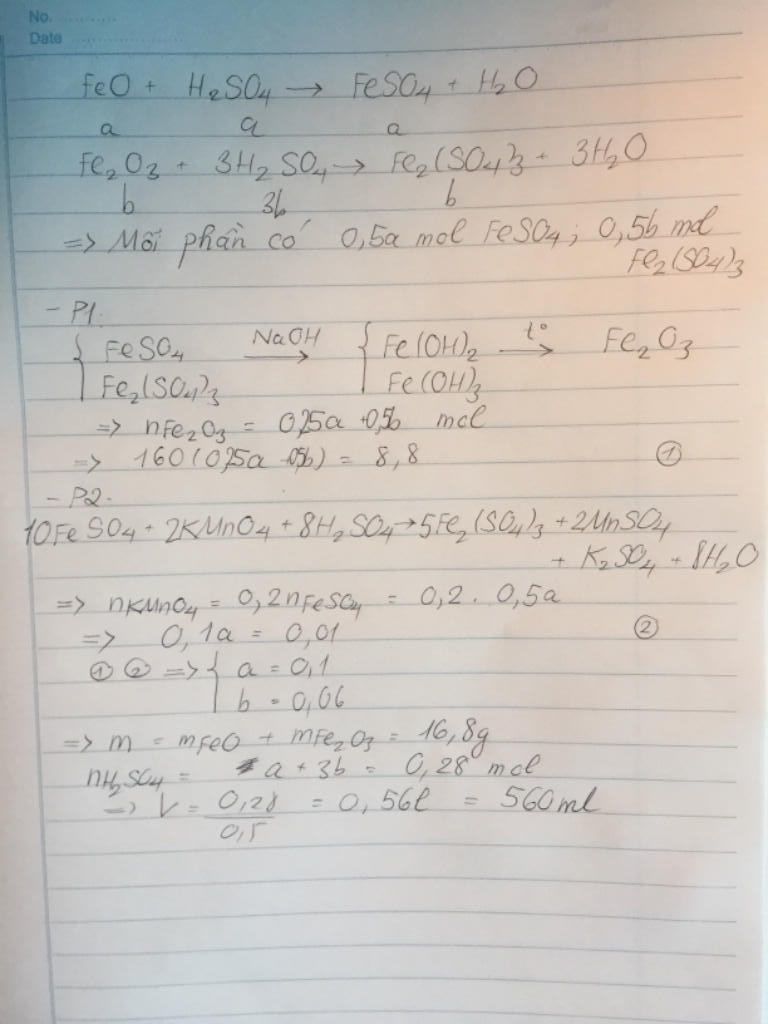 No. ............
Date ........................
FeO + H₂SO₄ → FeSO₄ + H₂O
a a a
Fe₂O₃ + 3H₂SO₄ → Fe₂(SO₄)₃ + 3H₂O
b 3b b
=> Mỗi phần có 0,5a mol FeSO₄; 0,5b mol
Fe₂(SO₄)₃
- P1.
{ FeSO₄ NaOH → { Fe(OH)₂ t° → Fe₂O₃
Fe₂(SO₄)₃ Fe(OH)₃
=> nFe₂O₃ = 0,25a +0,5b mol
=> 160(0,25a 0,5b) = 8,8 ①
- P2.
10FeSO₄ + 2KMnO₄ + 8H₂SO₄ → 5Fe₂(SO₄)₃ + 2MnSO₄
+ K₂SO₄ + 8H₂O
=> nKMnO₄ = 0,2nFeSO₄ = 0,2 . 0,5a
=> 0,1a = 0,01 ②
① ② => { a = 0,1
b = 0,06
=> m = mFeO + mFe₂O₃ = 16,8g
nH₂SO₄ = a + 3b = 0,28 mol
=> V = 0,28 / 0,5 = 0,56l = 560ml